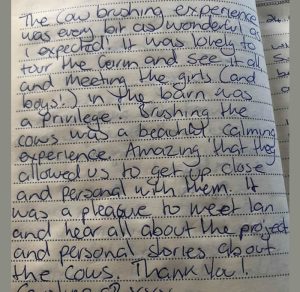 The Cow brushing experience
was every bit as wonderful as
I expected! It was lovely to
tour the farm and see it all
and meeting the girls (and
boys!) in the barn was
a privilege. Brushing the
cows was a beautiful calming
experience. Amazing that they
allowed us to get up close
and personal with them. It
was a pleasure to meet Ian
and hear all about the project
and personal stories about
the cows. Thank you!